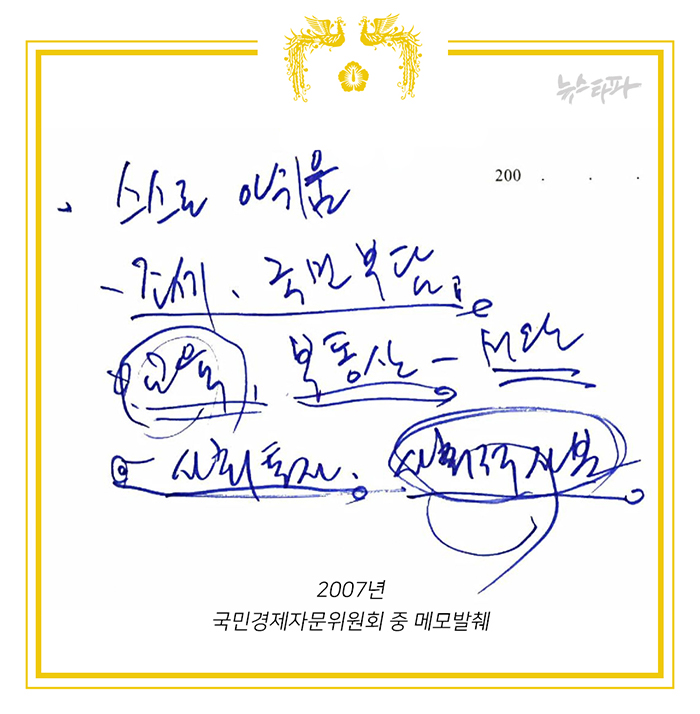 뉴스타파
200 . . .
스스로 아쉬움
- 조세, 국민부담
교육, 부동산 -
- 사회투자. 사회적 자본
2007년
국민경제자문위원회 중 메모발췌